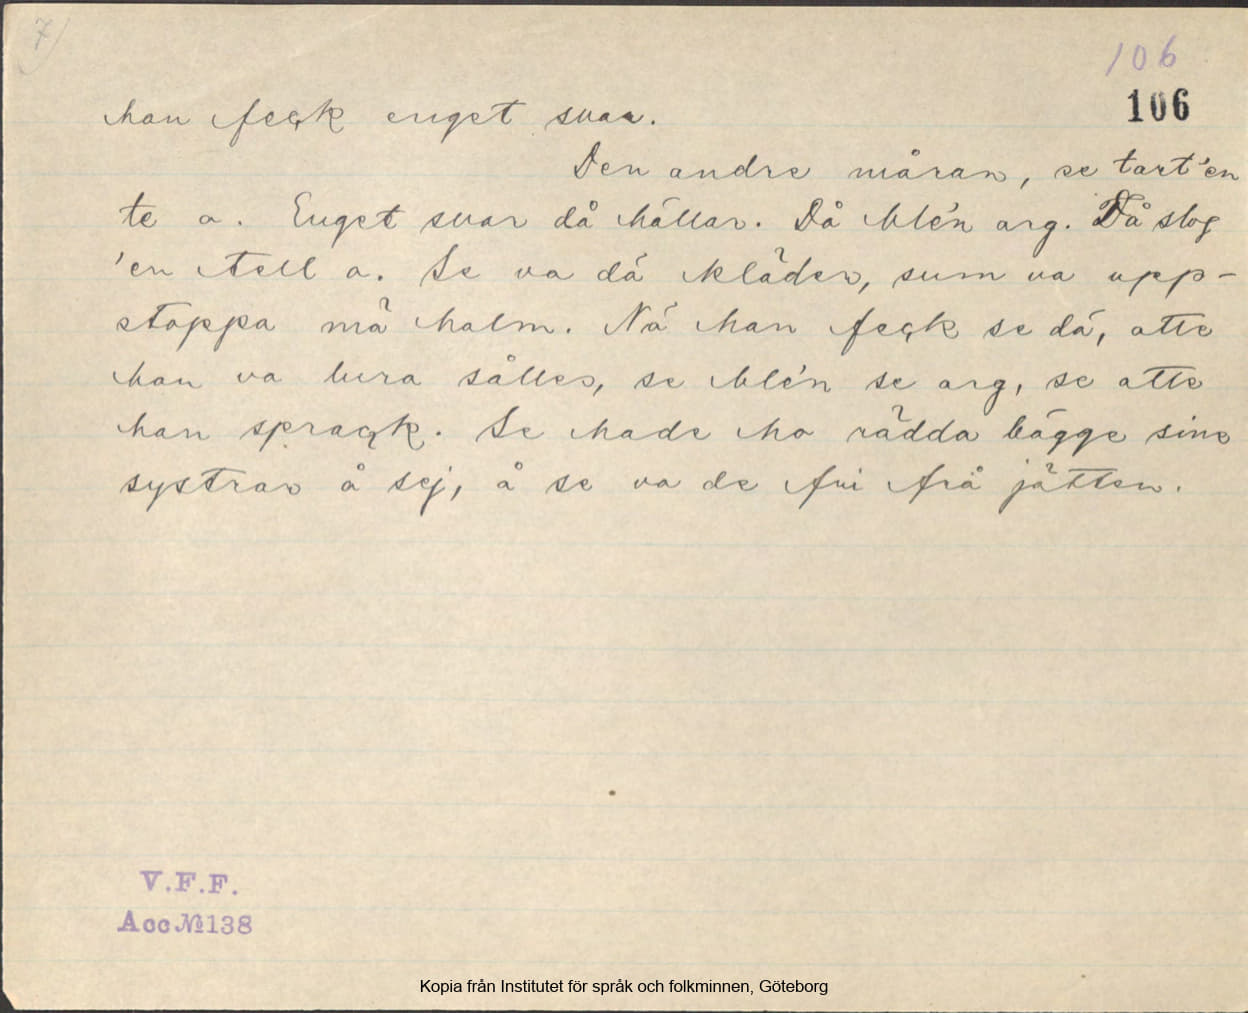 7)
106
106
han feçk enget svar.
Den andre måran, se tart'en
te a. Enget svar då hällar. Då ble'n arg. Då slog
'en tell a. Se va dä kläder, sum va upp-
stoppa mä halm. Nä han feçk se dä, atte
han va lura sålles, se ble'n se arg, se atte
han spraçk. Se hade ho rädda bägge sine
systrar å sej, å se va de fri frå jätten.
V.F.F.
Acc № 138
Kopia från Institutet för språk och folkminnen, Göteborg